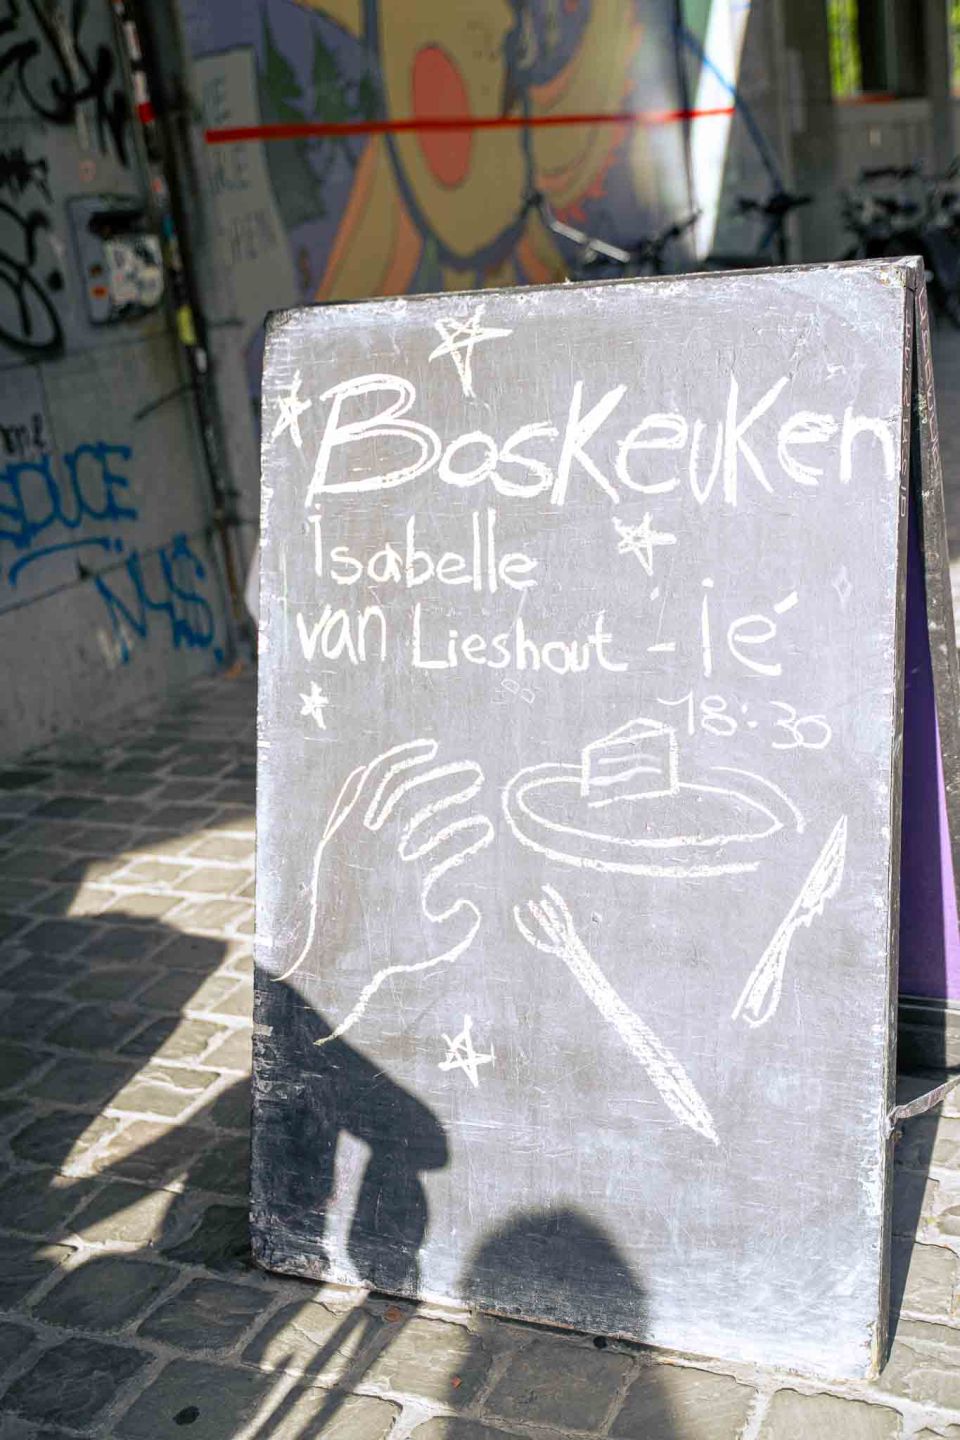 BosKeuKen
isabelle
van Lieshout - ié
18:30
SDUCE